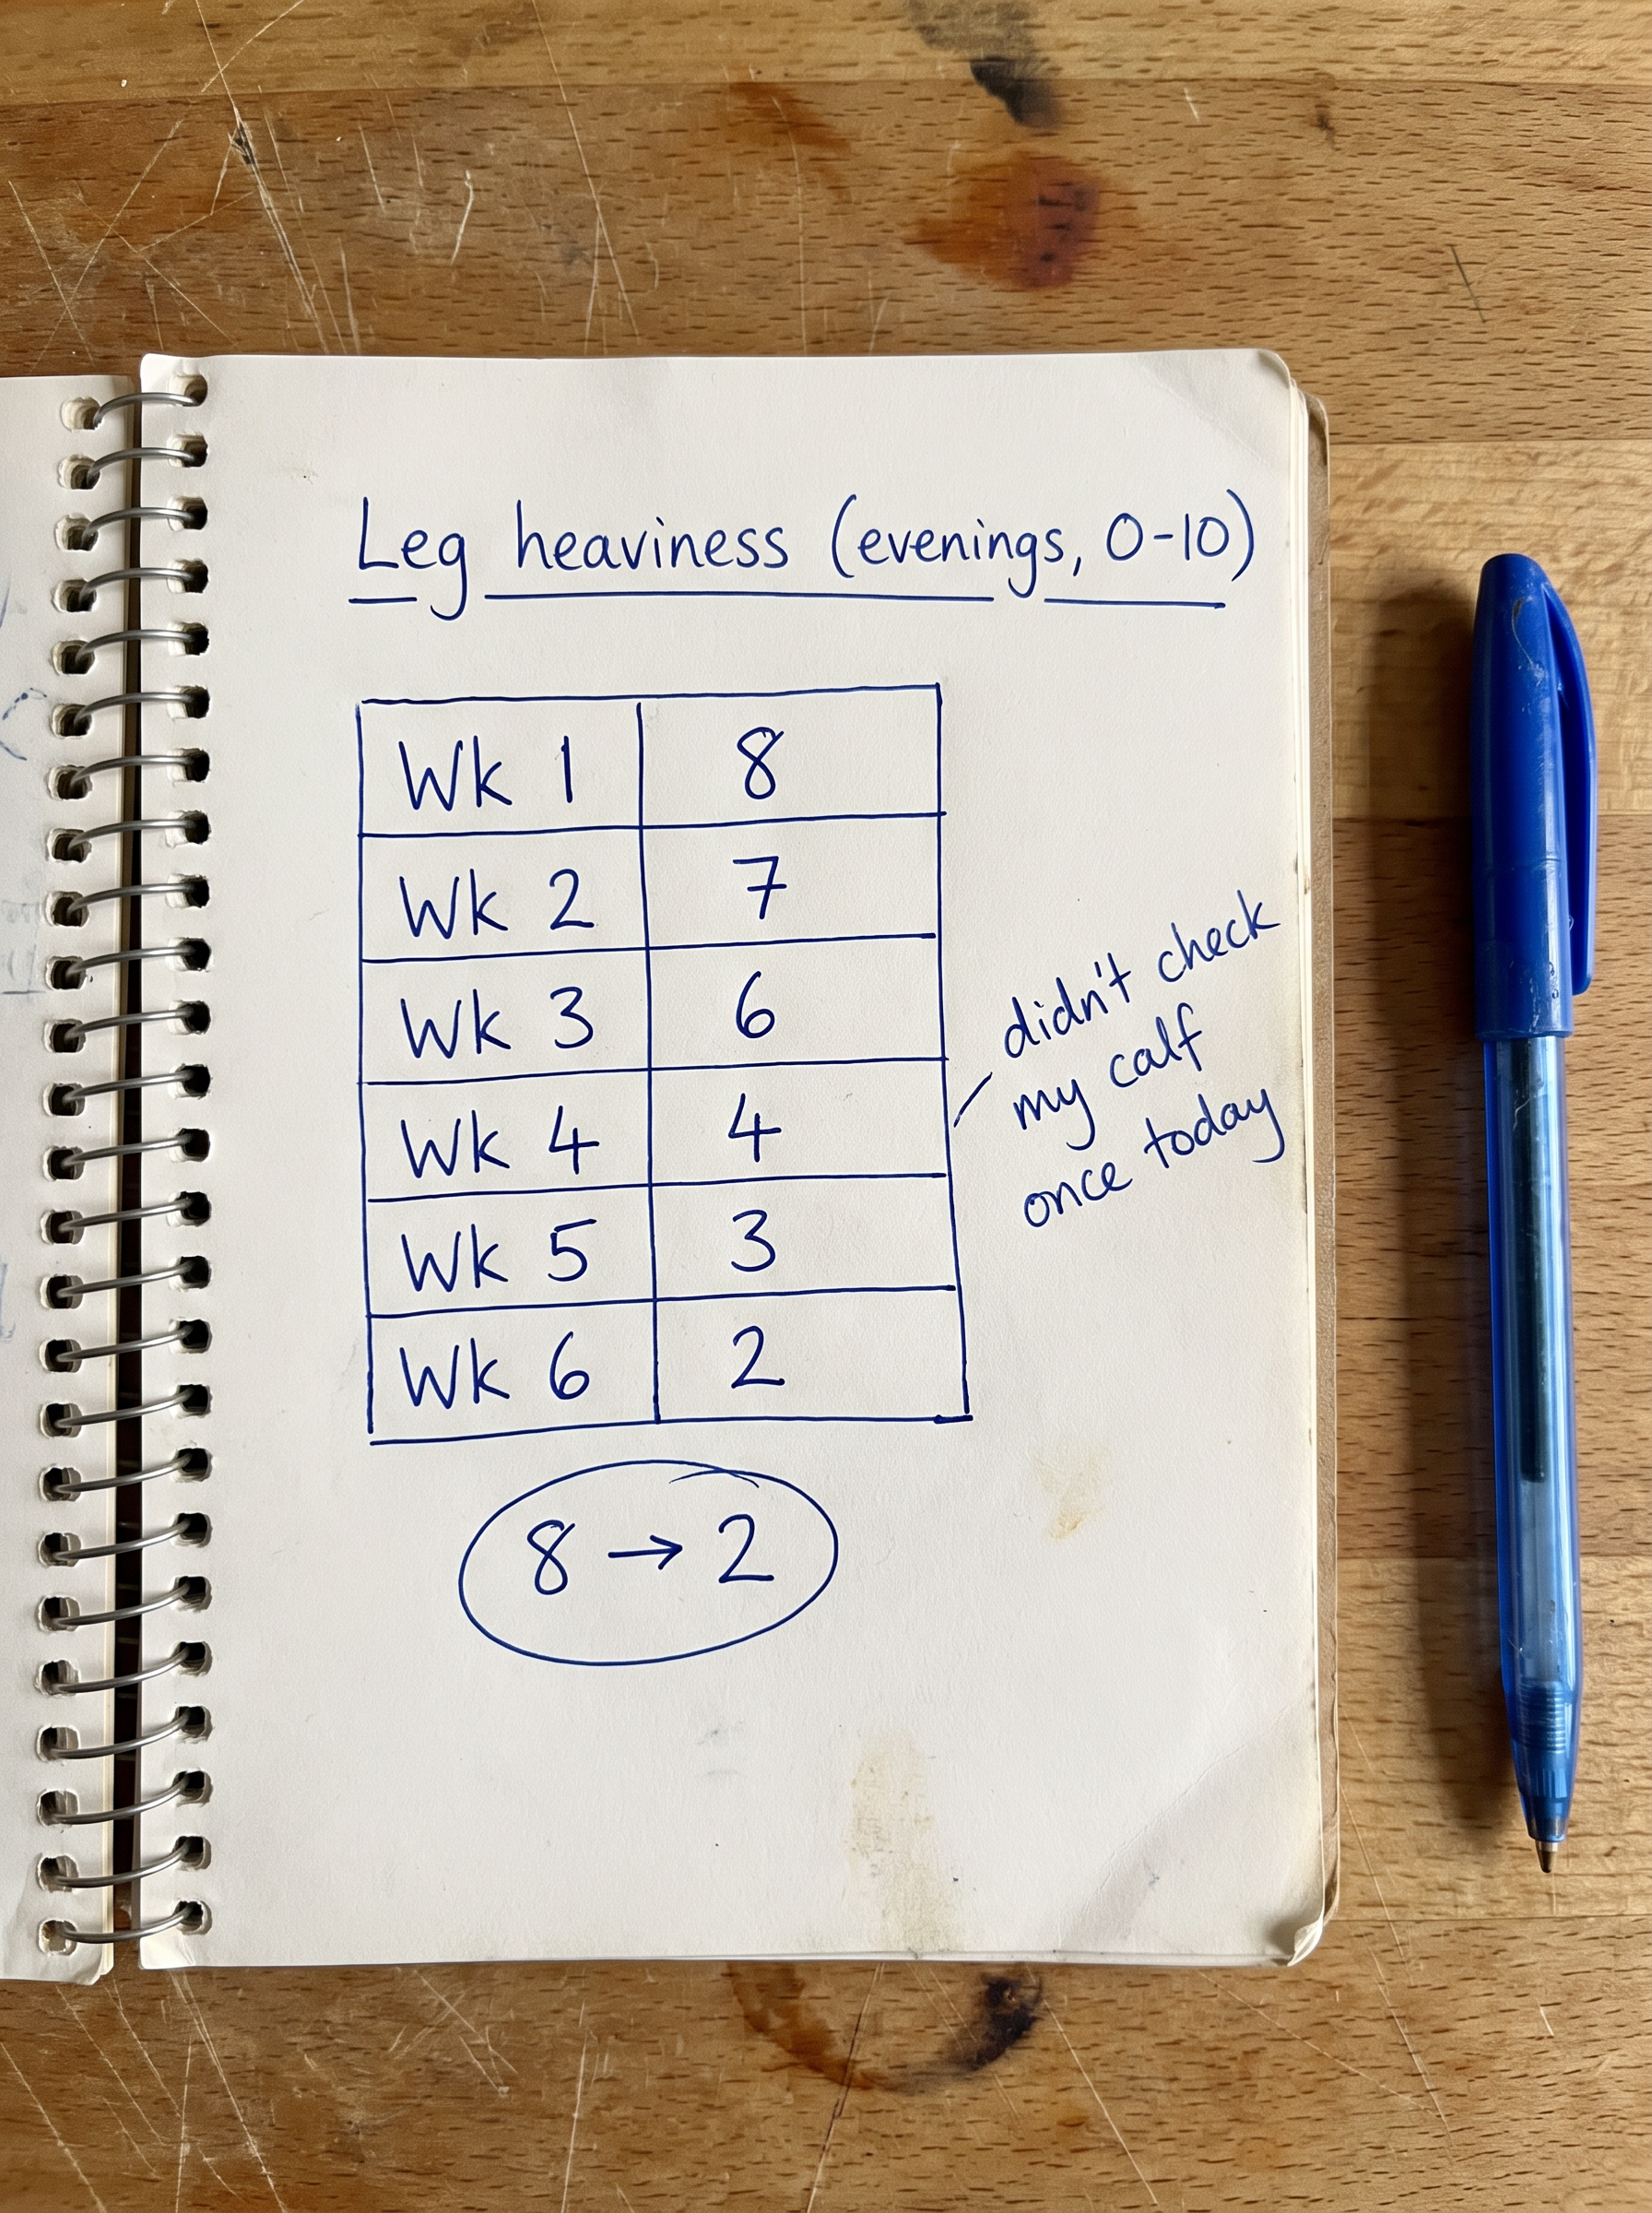 Leg heaviness (evenings, 0-10)
Wk 1 8
Wk 2 7
Wk 3 6
Wk 4 4
didn't check
my calf
once today
Wk 5 3
Wk 6 2
8 → 2